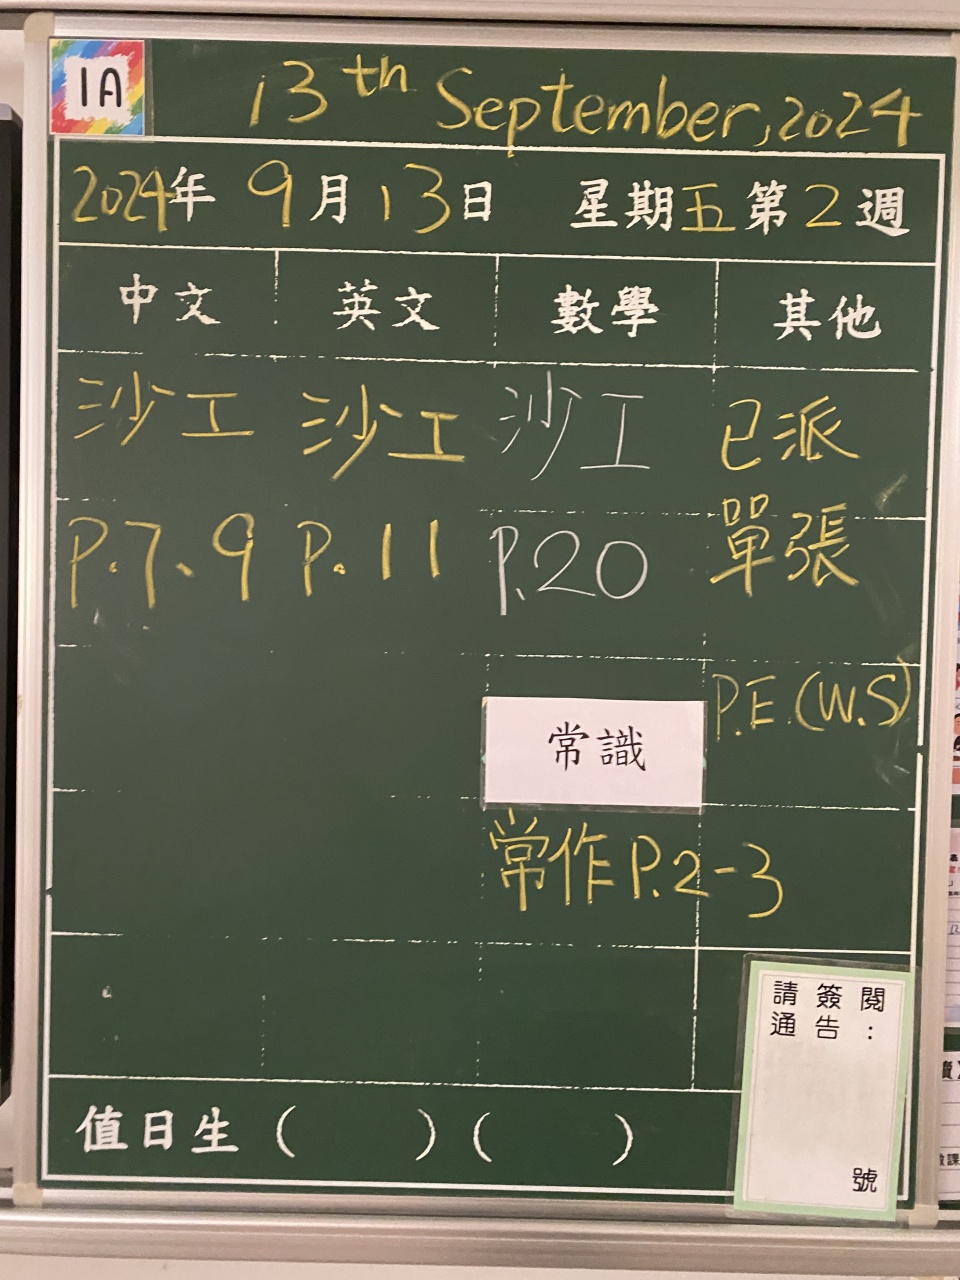 1A
13th September, 2024
2024年 9月13日 星期五第2週
中文 英文 數學 其他
沙工 沙工 沙工 已派
P.7、9 P.11 P.20 單張
P.E (W.S)
常識
常作P.2-3
請簽閱
通告:
號
值日生 ( ) ( )